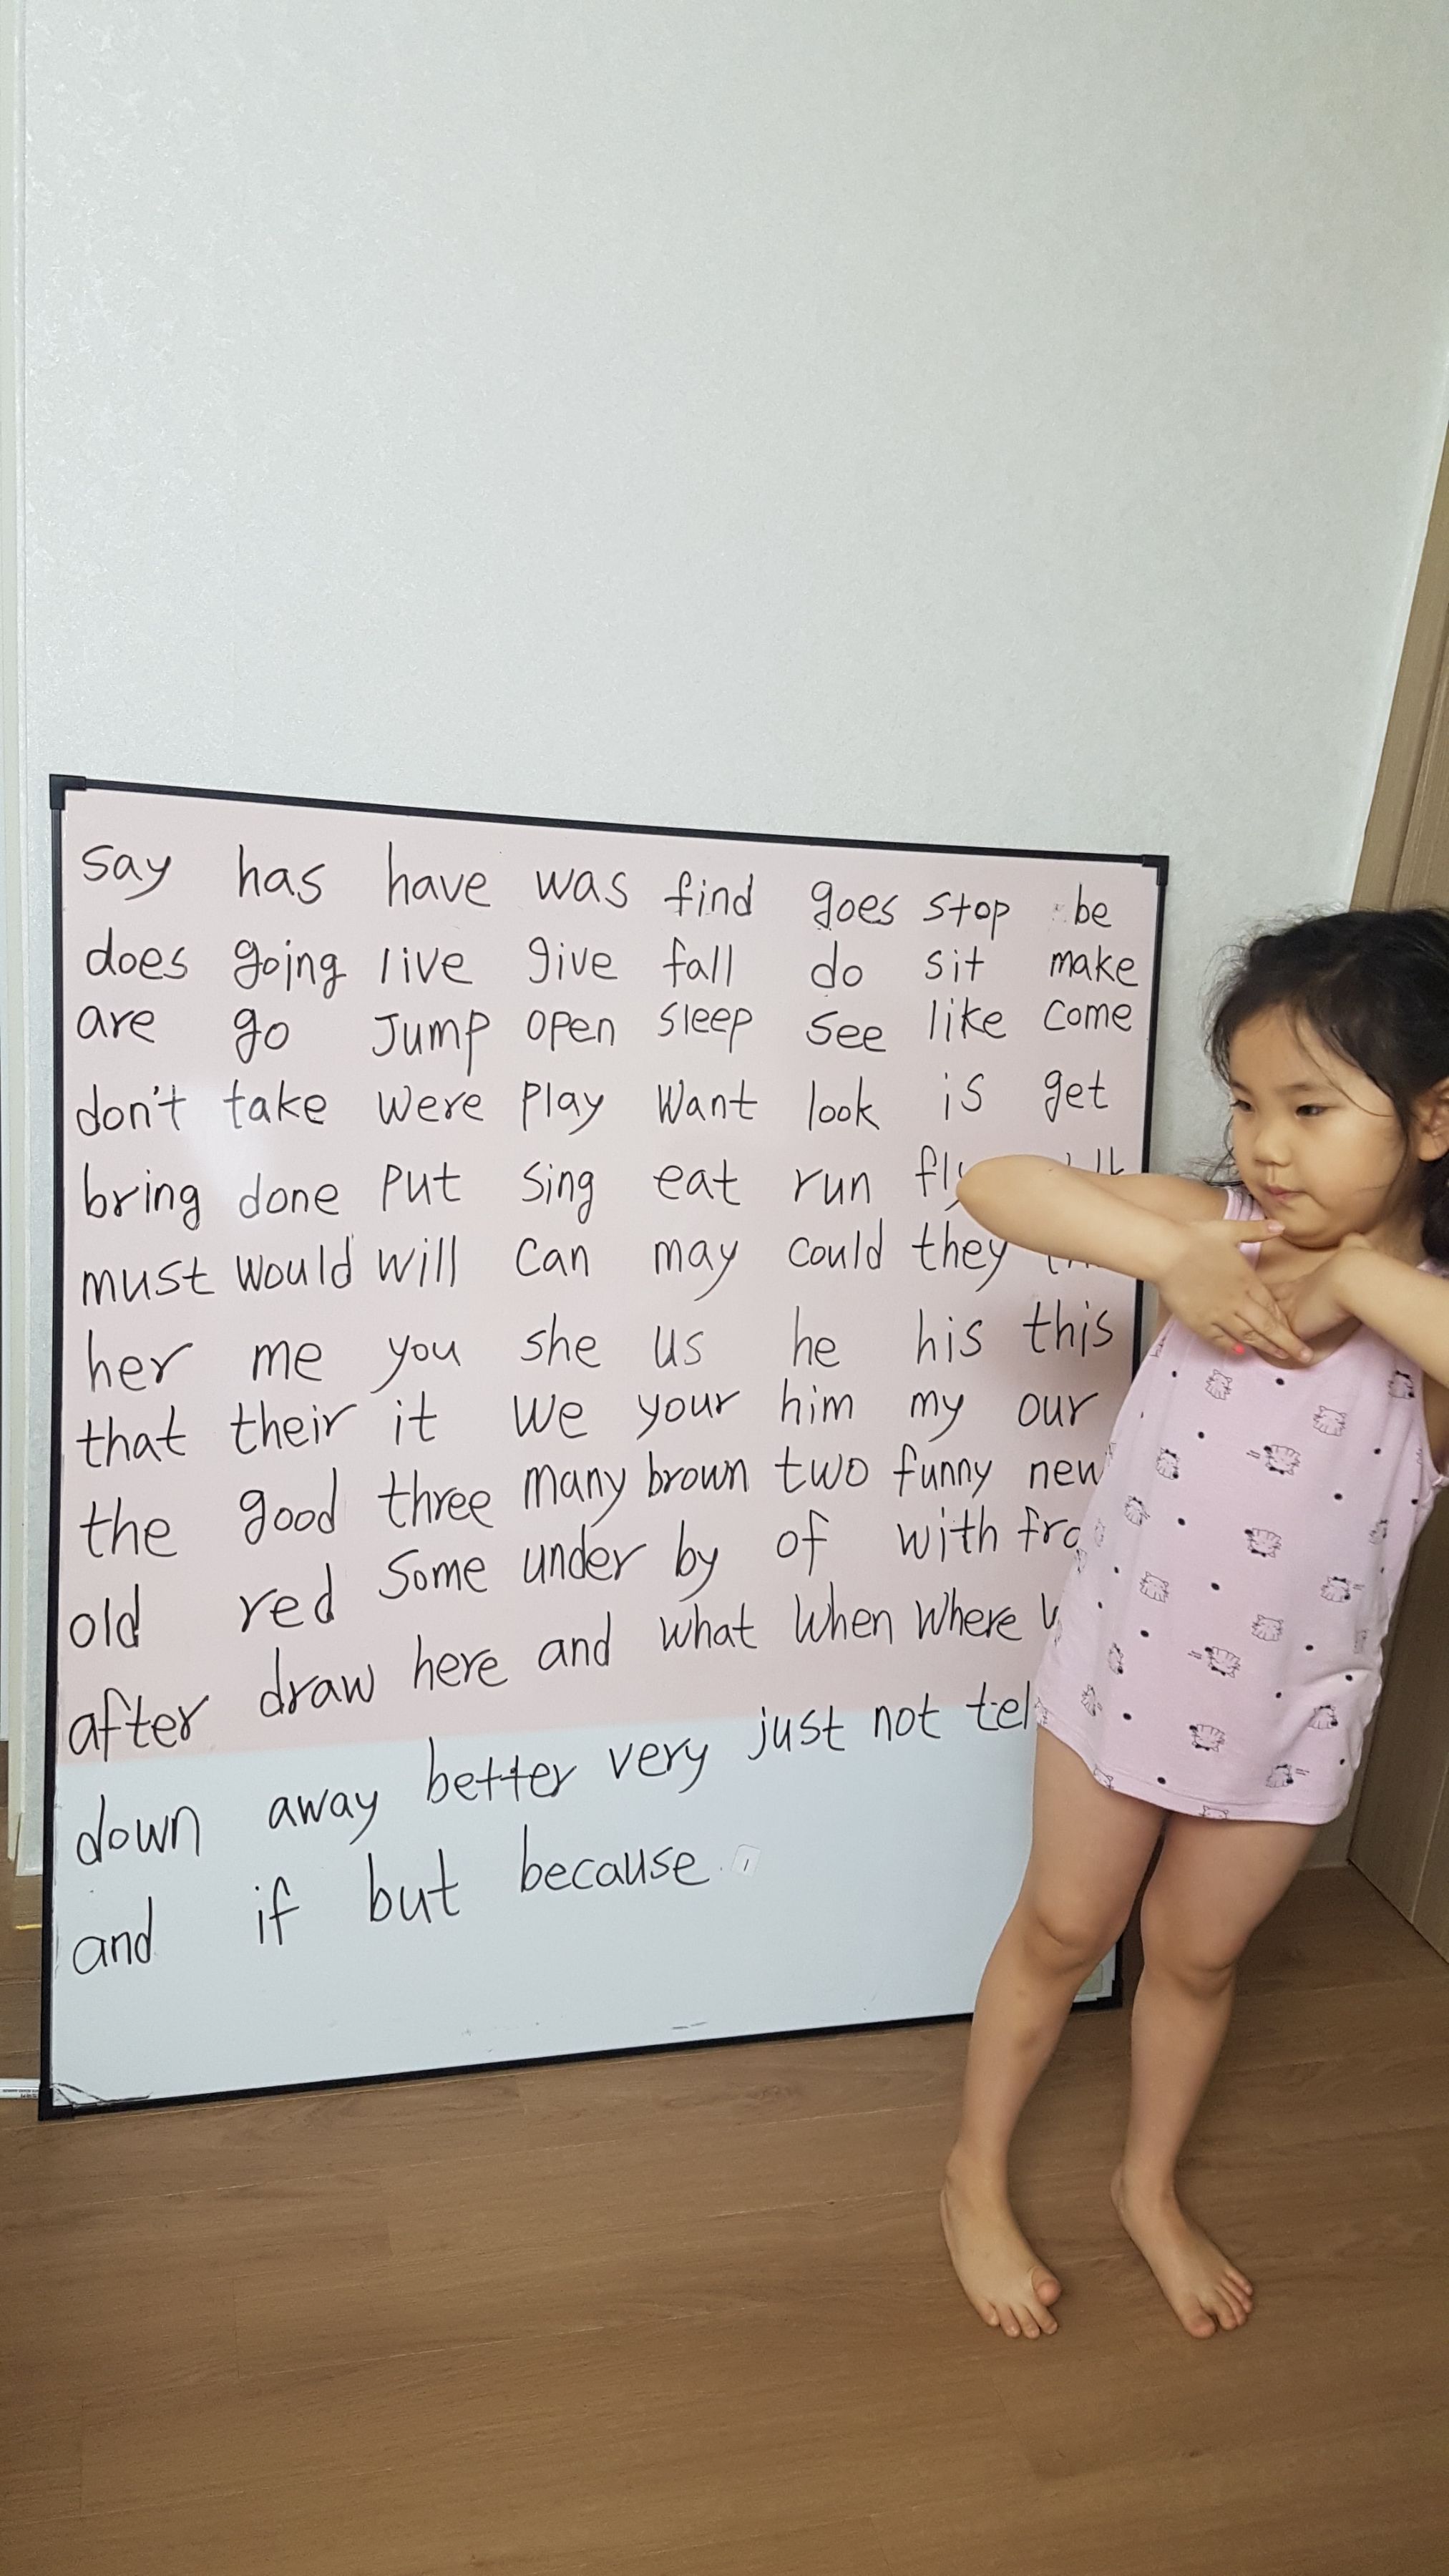 say has have was find goes stop be
does going live give fall do sit make
are go Jump open sleep see like come
don't take were play want look is get
bring done put sing eat run fly
must would will can may could they
her me you she us he his this
that their it we your him my our
the good three many brown two funny new
old red some under by of with
after draw here and what when where
down away better very just not
and if but because